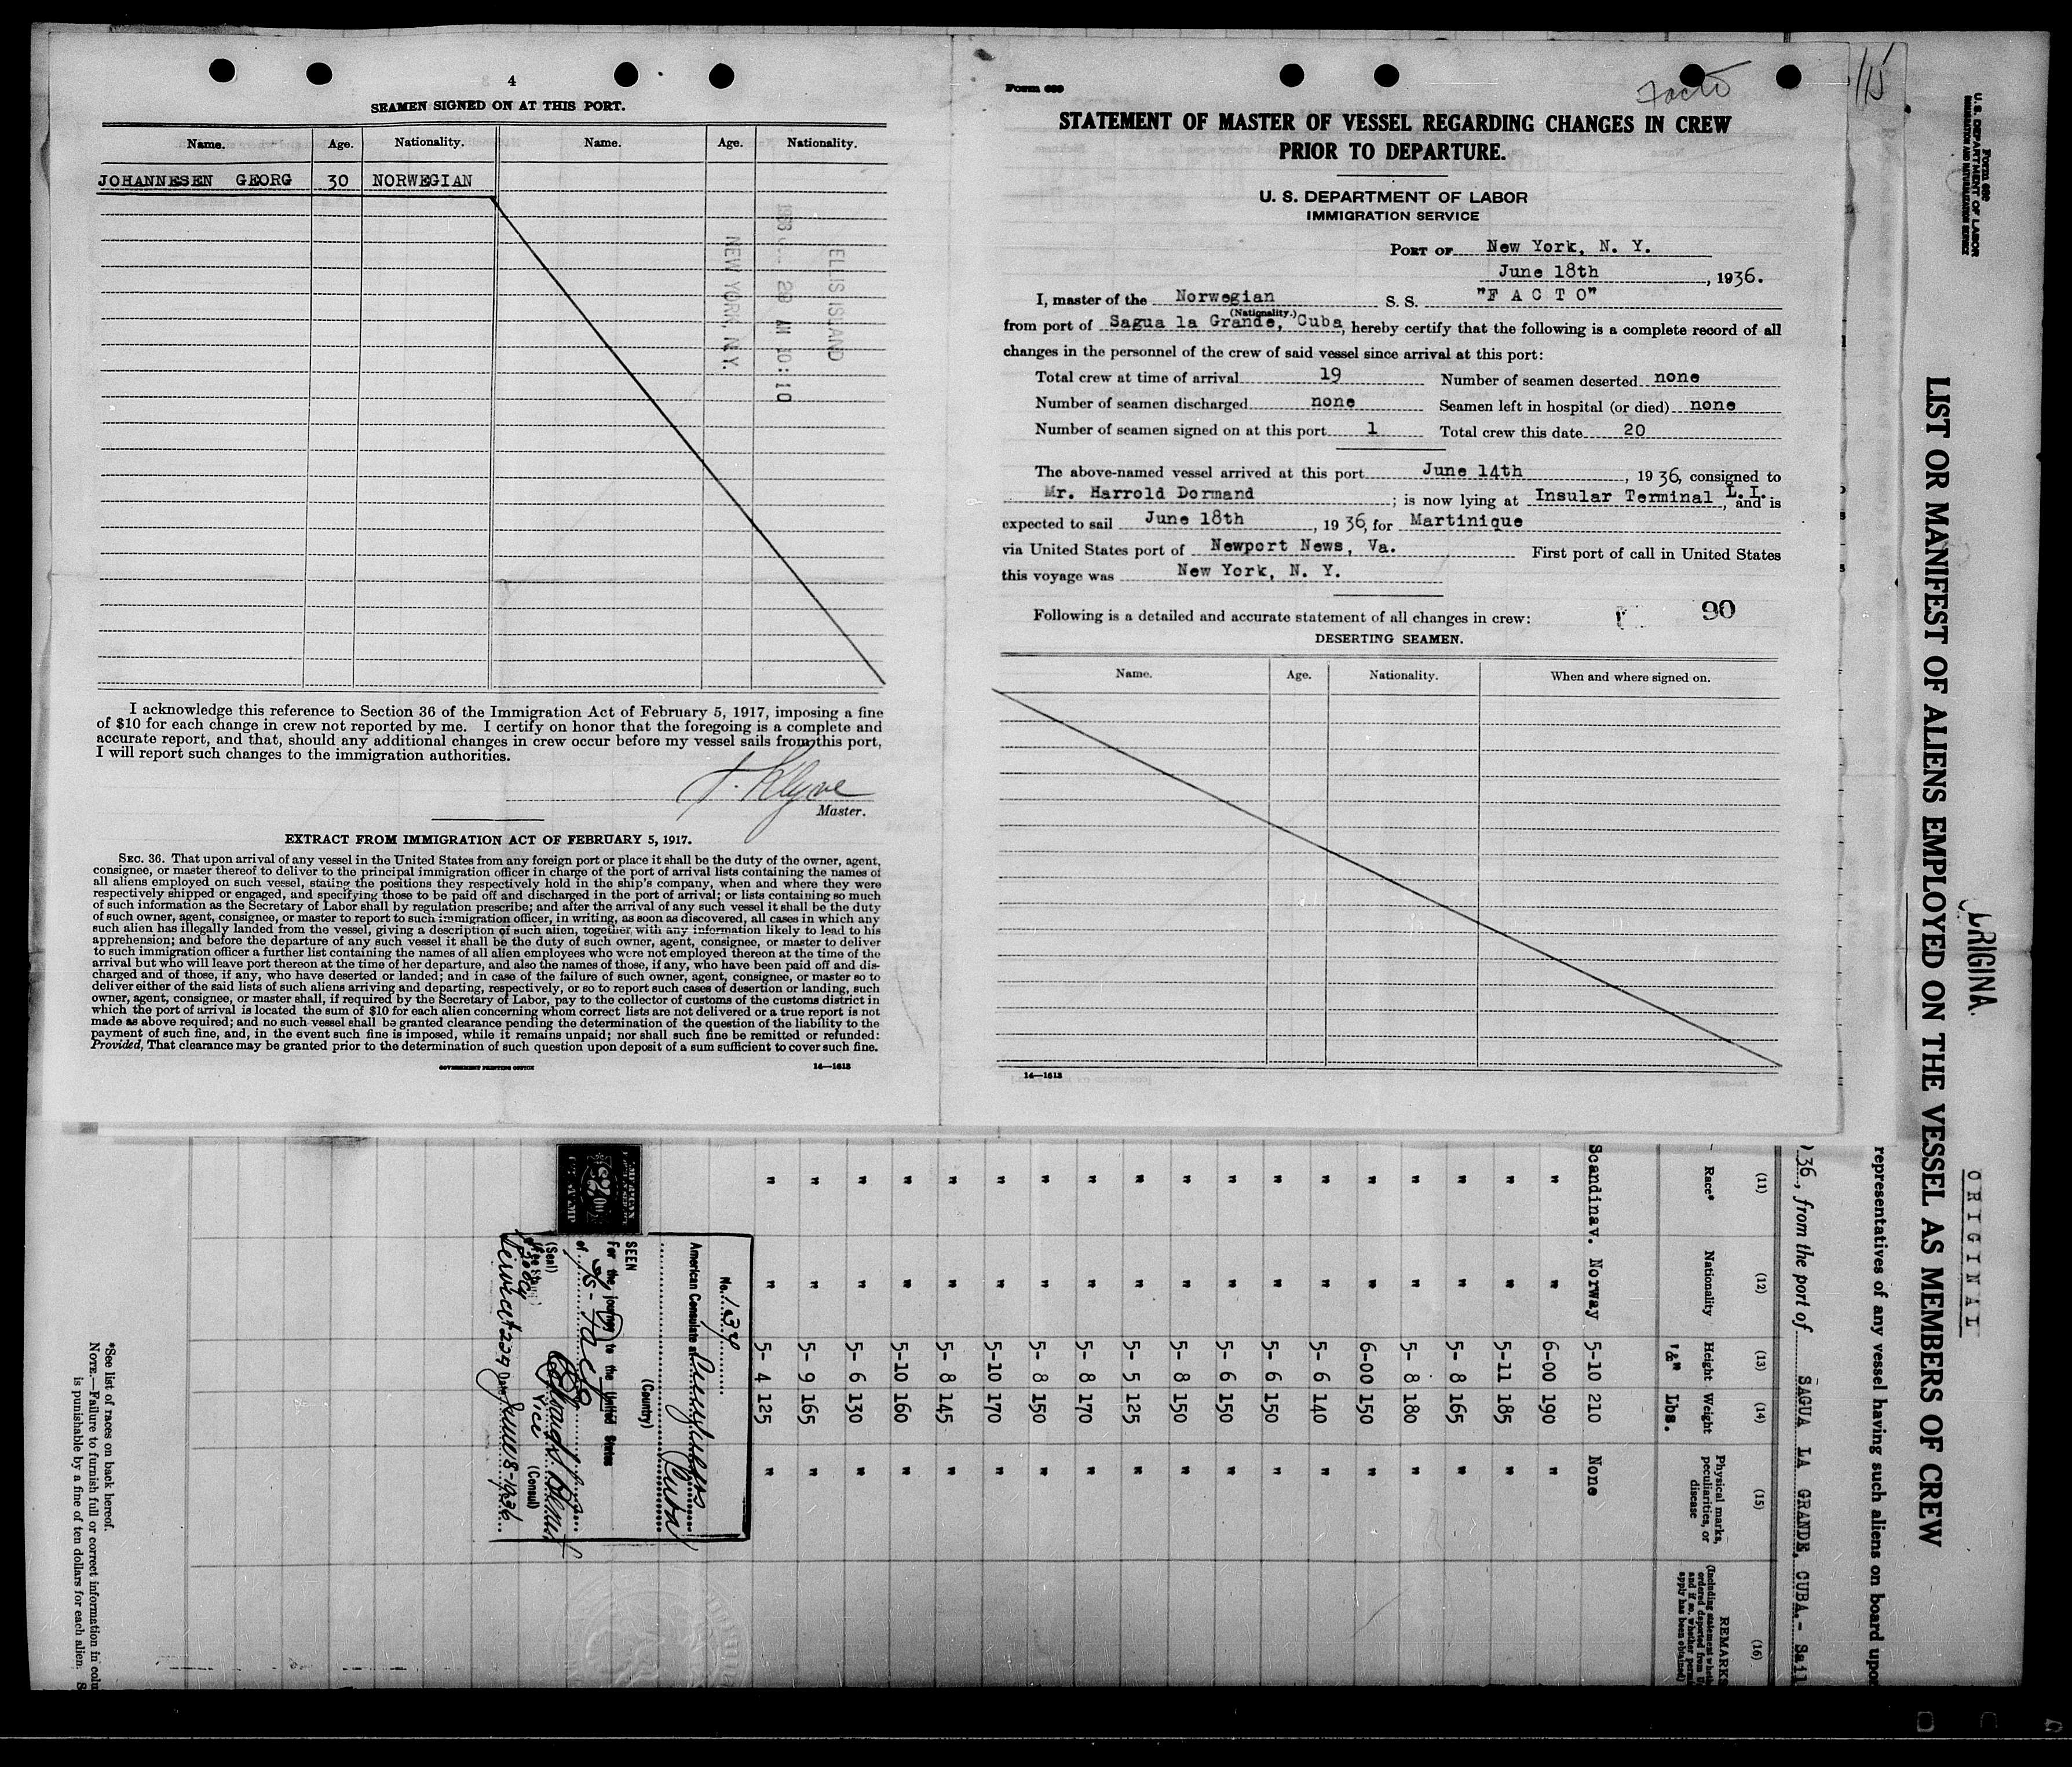 4
SEAMEN SIGNED ON AT THIS PORT.
Name. Age. Nationality. Name. Age. Nationality.
JOHANNESEN GEORG 30 NORWEGIAN
ELLIS ISLAND
28 AM 10:10
NEW YORK, N.Y.
I acknowledge this reference to Section 36 of the Immigration Act of February 5, 1917, imposing a fine
of $10 for each change in crew not reported by me. I certify on honor that the foregoing is a complete and
accurate report, and that, should any additional changes in crew occur before my vessel sails from this port,
I will report such changes to the immigration authorities.
Master.
EXTRACT FROM IMMIGRATION ACT OF FEBRUARY 5, 1917.
SEC. 36. That upon arrival of any vessel in the United States from any foreign port or place it shall be the duty of the owner, agent,
consignee, or master thereof to deliver to the principal immigration officer in charge of the port of arrival lists containing the names of
all aliens employed on such vessel, stating the positions they respectively hold in the ship's company, when and where they were
respectively shipped or engaged, and specifying those to be paid off and discharged in the port of arrival; or lists containing so much
of such information as the Secretary of Labor shall by regulation prescribe; and after the arrival of any such vessel it shall be the duty
of such owner, agent, consignee, or master to report to such immigration officer, in writing, as soon as discovered, all cases in which any
such alien has illegally landed from the vessel, giving a description of such alien, together with any information likely to lead to his
apprehension; and before the departure of any such vessel it shall be the duty of such owner, agent, consignee, or master to deliver
to such immigration officer a further list containing the names of all alien employees who were not employed thereon at the time of the
arrival but who will leave port thereon at the time of her departure, and also the names of those, if any, who have been paid off and dis-
charged and of those, if any, who have deserted or landed; and in case of the failure of such owner, agent, consignee, or master so to
deliver either of the said lists of such aliens arriving and departing, respectively, or so to report such cases of desertion or landing, such
owner, agent, consignee, or master shall, if required by the Secretary of Labor, pay to the collector of customs of the customs district in
which the port of arrival is located the sum of $10 for each alien concerning whom correct lists are not delivered or a true report is not
made as above required; and no such vessel shall be granted clearance pending the determination of the question of the liability to the
payment of such fine, and, in the event such fine is imposed, while it remains unpaid; nor shall such fine be remitted or refunded:
Provided, That clearance may be granted prior to the determination of such question upon deposit of a sum sufficient to cover such fine.
GOVERNMENT PRINTING OFFICE 14—1613
Form 689
Facto
STATEMENT OF MASTER OF VESSEL REGARDING CHANGES IN CREW
PRIOR TO DEPARTURE.
U. S. DEPARTMENT OF LABOR
IMMIGRATION SERVICE
PORT OF New York, N. Y.
June 18th, 1936.
I, master of the Norwegian S. S. "F A C T O"
(Nationality.)
from port of Sagua la Grande, Cuba, hereby certify that the following is a complete record of all
changes in the personnel of the crew of said vessel since arrival at this port:
Total crew at time of arrival 19 Number of seamen deserted none
Number of seamen discharged none Seamen left in hospital (or died) none
Number of seamen signed on at this port 1 Total crew this date 20
The above-named vessel arrived at this port June 14th, 1936, consigned to
Mr. Harrold Dormand; is now lying at Insular Terminal L.I., and is
expected to sail June 18th, 1936, for Martinique
via United States port of Newport News, Va. First port of call in United States
this voyage was New York, N. Y.
90
Following is a detailed and accurate statement of all changes in crew:
DESERTING SEAMEN.
Name. Age. Nationality. When and where signed on.
14—1613
115
Form 689
U. S. DEPARTMENT OF LABOR
IMMIGRATION AND NATURALIZATION SERVICE
ORIGINA
ORIGINAL
LIST OR MANIFEST OF ALIENS EMPLOYED ON THE VESSEL AS MEMBERS OF CREW
representatives of any vessel having such aliens on board upon
36, from the port of SAGUA LA GRANDE, CUBA.- Sail
(11) (12) (13) (14) (15) (16)
Race* Nationality Height Weight Physical marks, peculiarities, or disease REMARKS
' & " Lbs.
Scandinav. Norway 5-10 210 None
" " 6-00 190 "
" " 5-11 185 "
" " 5- 8 165 "
" " 5- 8 180 "
" " 6-00 150 "
" " 5- 6 140 "
" " 5- 6 150 "
" " 5- 6 150 "
" " 5- 8 150 "
" " 5- 5 125 "
" " 5- 8 170 "
" " 5- 8 150 "
" " 5-10 170 "
" " 5- 8 145 "
" " 5-10 160 "
" " 5- 6 130 "
" " 5- 9 165 "
" " 5- 4 125 "
No. 134
American Consulate at
Cuba
(Country)
SEEN
For the journey to the United States
of
(Seal)
Vice (Consul)
Date June 8-1936
*See list of races on back hereof.
NOTE.—Failure to furnish full or correct information in colu
is punishable by a fine of ten dollars for each alien.